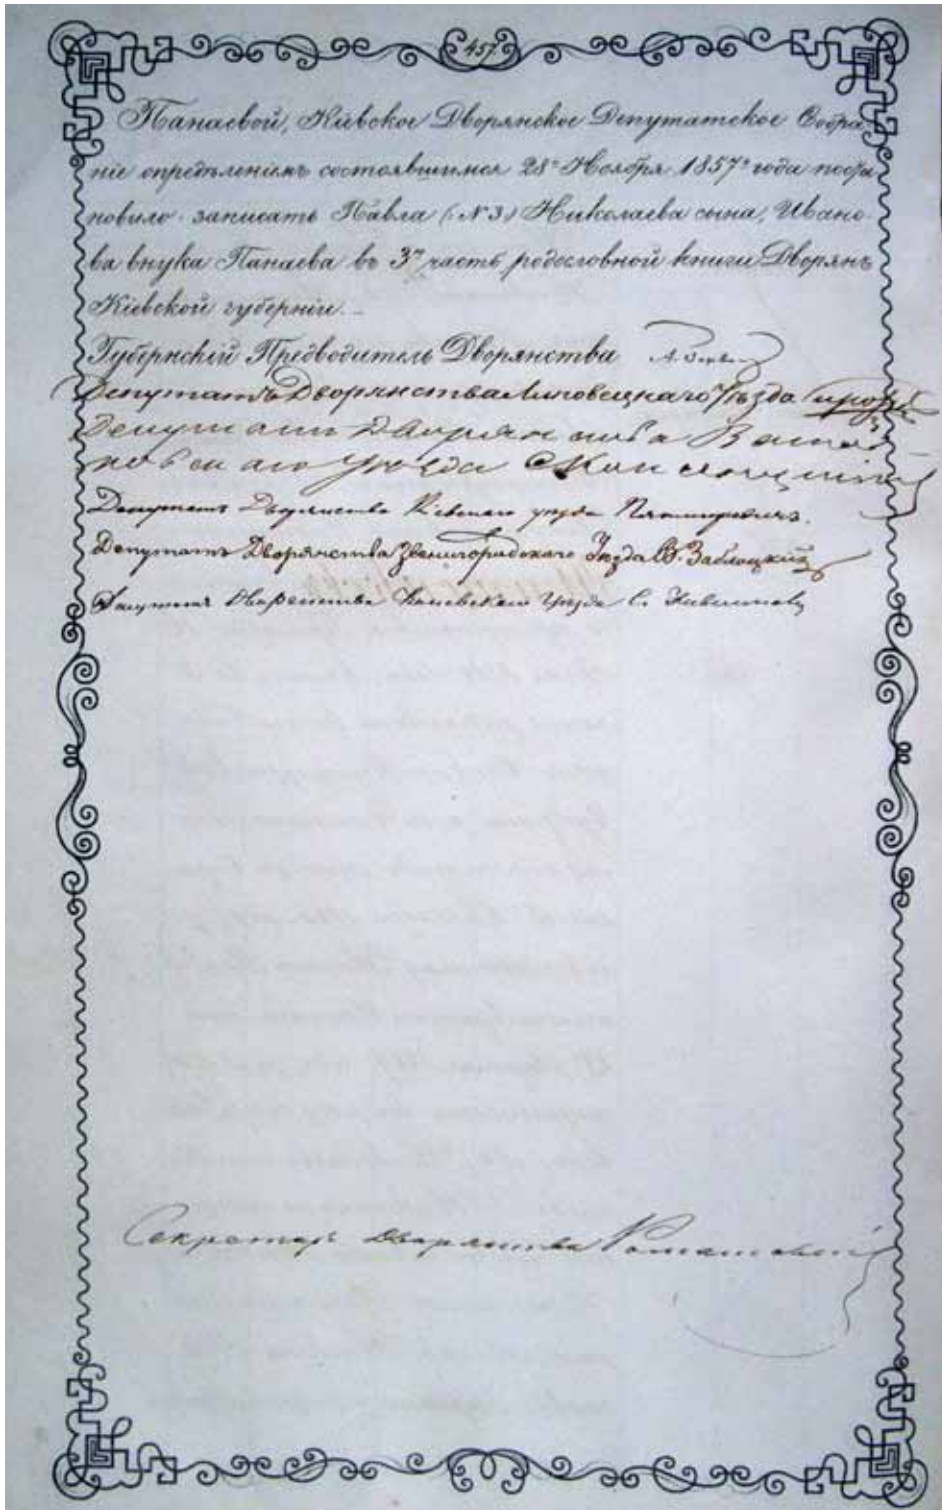 457.
Панаевой, Кіевское Дворянское Депутатское Собра
ніе опредѣленіемъ состоявшимся 28го Ноября 1857го года поста
новило: записать Павла (№ 3) Николаева сына, Ивано
ва внука Панаева въ 3ю часть родословной книги Дворянъ
Кіевской губерніи.
Губернскій Предводитель Дворянства
Депутатъ Дворянства Липовецкаго Уѣзда
Депутатъ Дворянства
Уѣзда
Депутатъ Дворянства Кіевскаго уѣзда
Депутатъ Дворянства Звенигородскаго Уѣзда В. Заблоцкій
Депутатъ Дворянства Каневскаго Уѣзда С.
Секретарь Дворянства